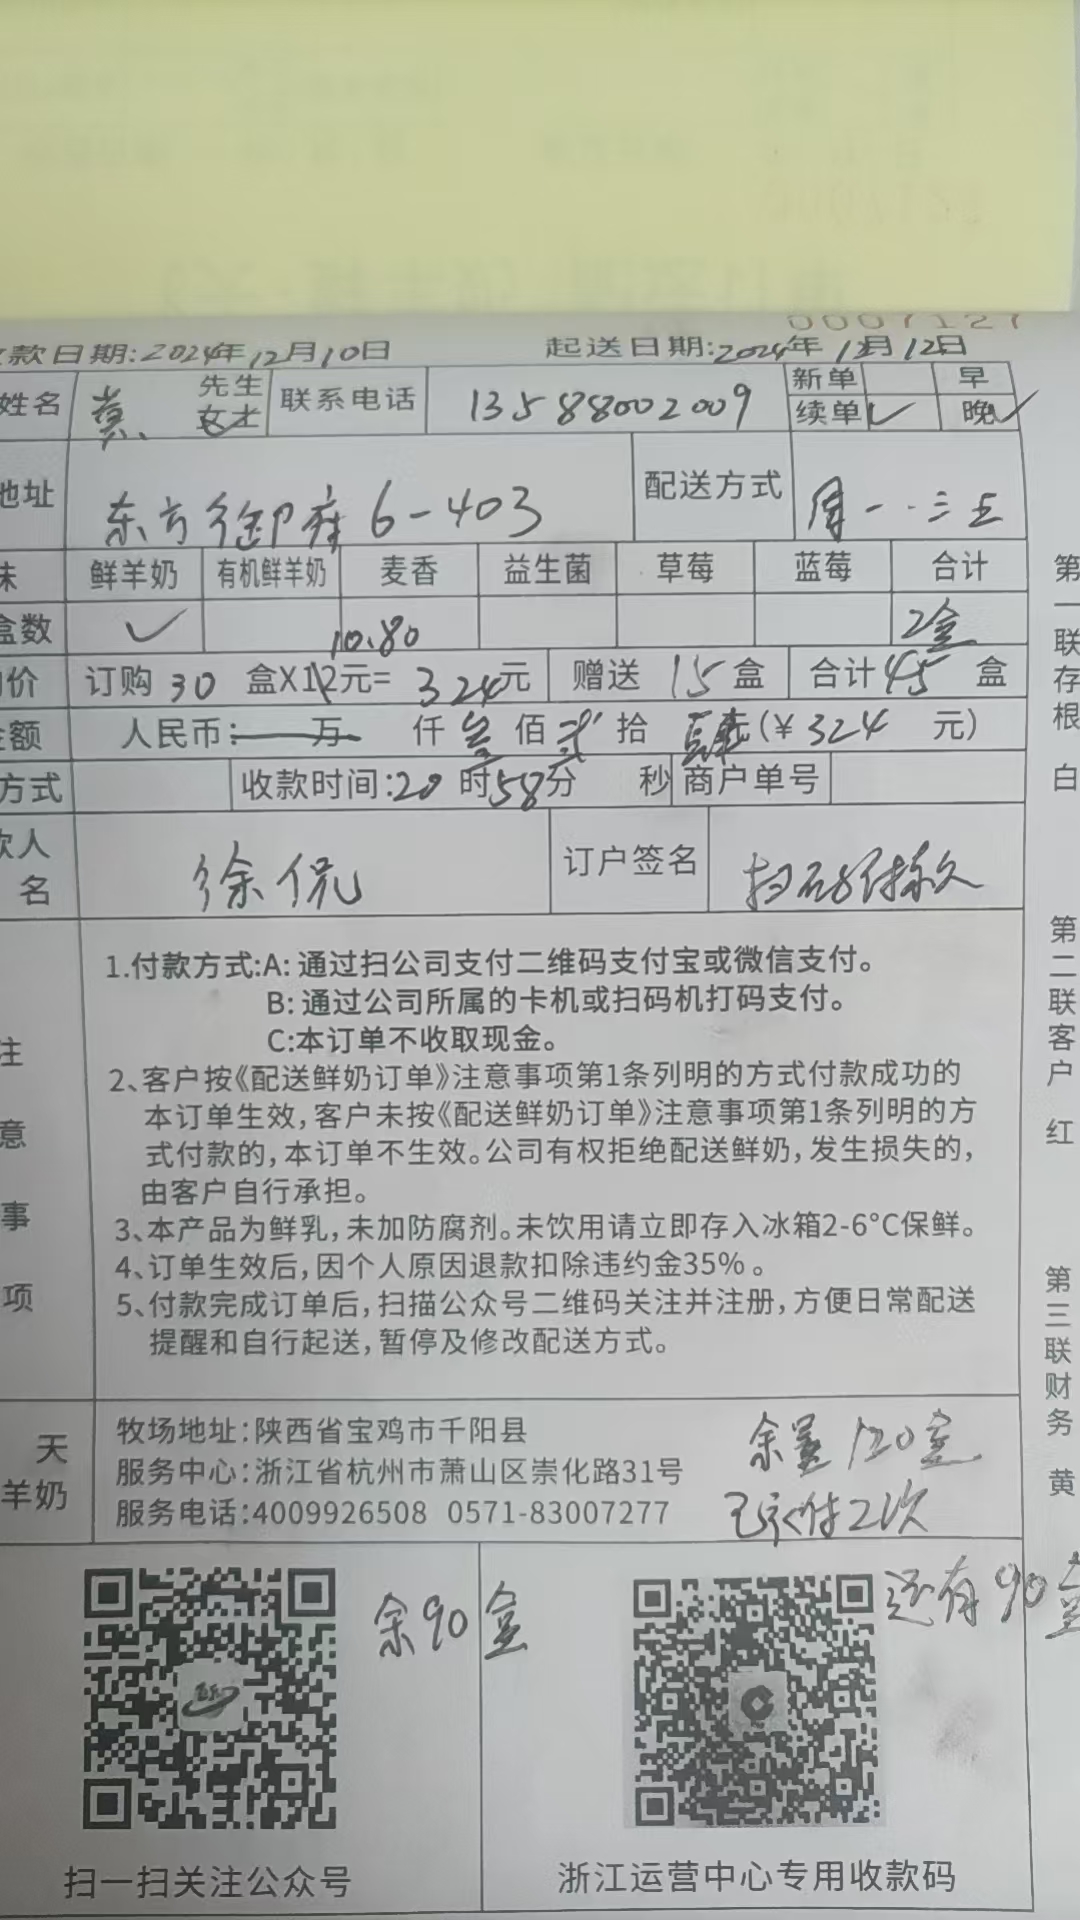 0007127
款日期:2024年12月10日 起送日期:2024年12月12日
姓名 黄 先生 女士 联系电话 13588002009 新单 早
续单✓ 晚✓
地址 东方御府6-403 配送方式 周一.三五
味 鲜羊奶 有机鲜羊奶 麦香 益生菌 草莓 蓝莓 合计
盒数 ✓ 2盒
10.80
价 订购30盒X12元=324元 赠送15盒 合计45盒
金额 人民币: 万 仟叁佰贰拾肆元(¥324元)
方式 收款时间:20时58分 秒 商户单号
款人 名 徐侃 订户签名 扫码付
注意事项
1.付款方式:A: 通过扫公司支付二维码支付宝或微信支付。
B: 通过公司所属的卡机或扫码机打码支付。
C:本订单不收取现金。
2、客户按《配送鲜奶订单》注意事项第1条列明的方式付款成功的
本订单生效,客户未按《配送鲜奶订单》注意事项第1条列明的方
式付款的,本订单不生效。公司有权拒绝配送鲜奶,发生损失的,
由客户自行承担。
3、本产品为鲜乳,未加防腐剂。未饮用请立即存入冰箱2-6°C保鲜。
4、订单生效后,因个人原因退款扣除违约金35%。
5、付款完成订单后,扫描公众号二维码关注并注册,方便日常配送
提醒和自行起送,暂停及修改配送方式。
天
羊奶
牧场地址:陕西省宝鸡市千阳县
服务中心:浙江省杭州市萧山区崇化路31号
服务电话:4009926508 0571-83007277
120盒
2次
还有90盒
余90盒
扫一扫关注公众号
浙江运营中心专用收款码
第一联存根 白
第二联客户 红
第三联财务 黄